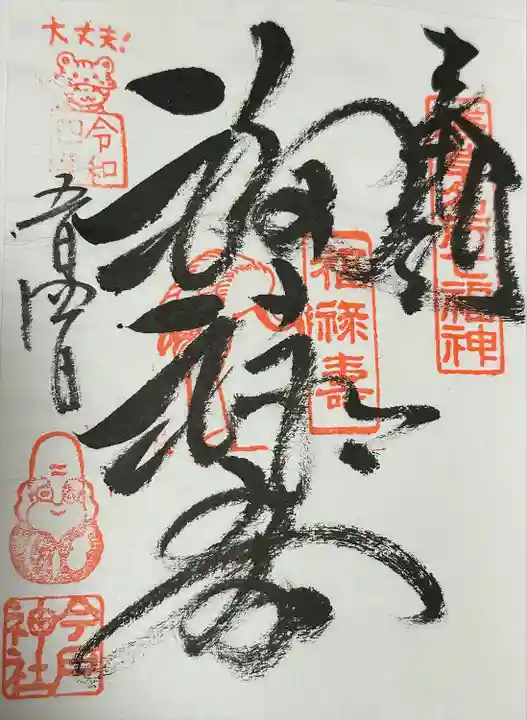 奉拝
浅草名所七福神
福禄寿
福禄壽
大丈夫!
令和
四年
五月四日
今戸
神社